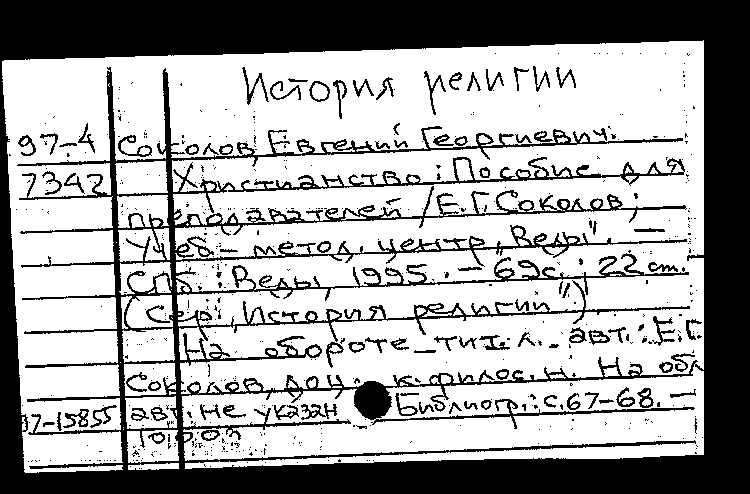 История религии
97-4 Соколов, Евгений Георгиевич.
7342 Христианство : Пособие для
преподавателей / Е.Г. Соколов;
Учеб.-метод. центр "Веды". —
СПб. : Веды, 1995. - 69с. ; 22 см.
(Сер. "История религии")
На обороте тит. л. авт.: Е.Г.
Соколов, доц. к.филос.н. На обл
97-15855 авт. не указан Библиогр.: с.67-68. —